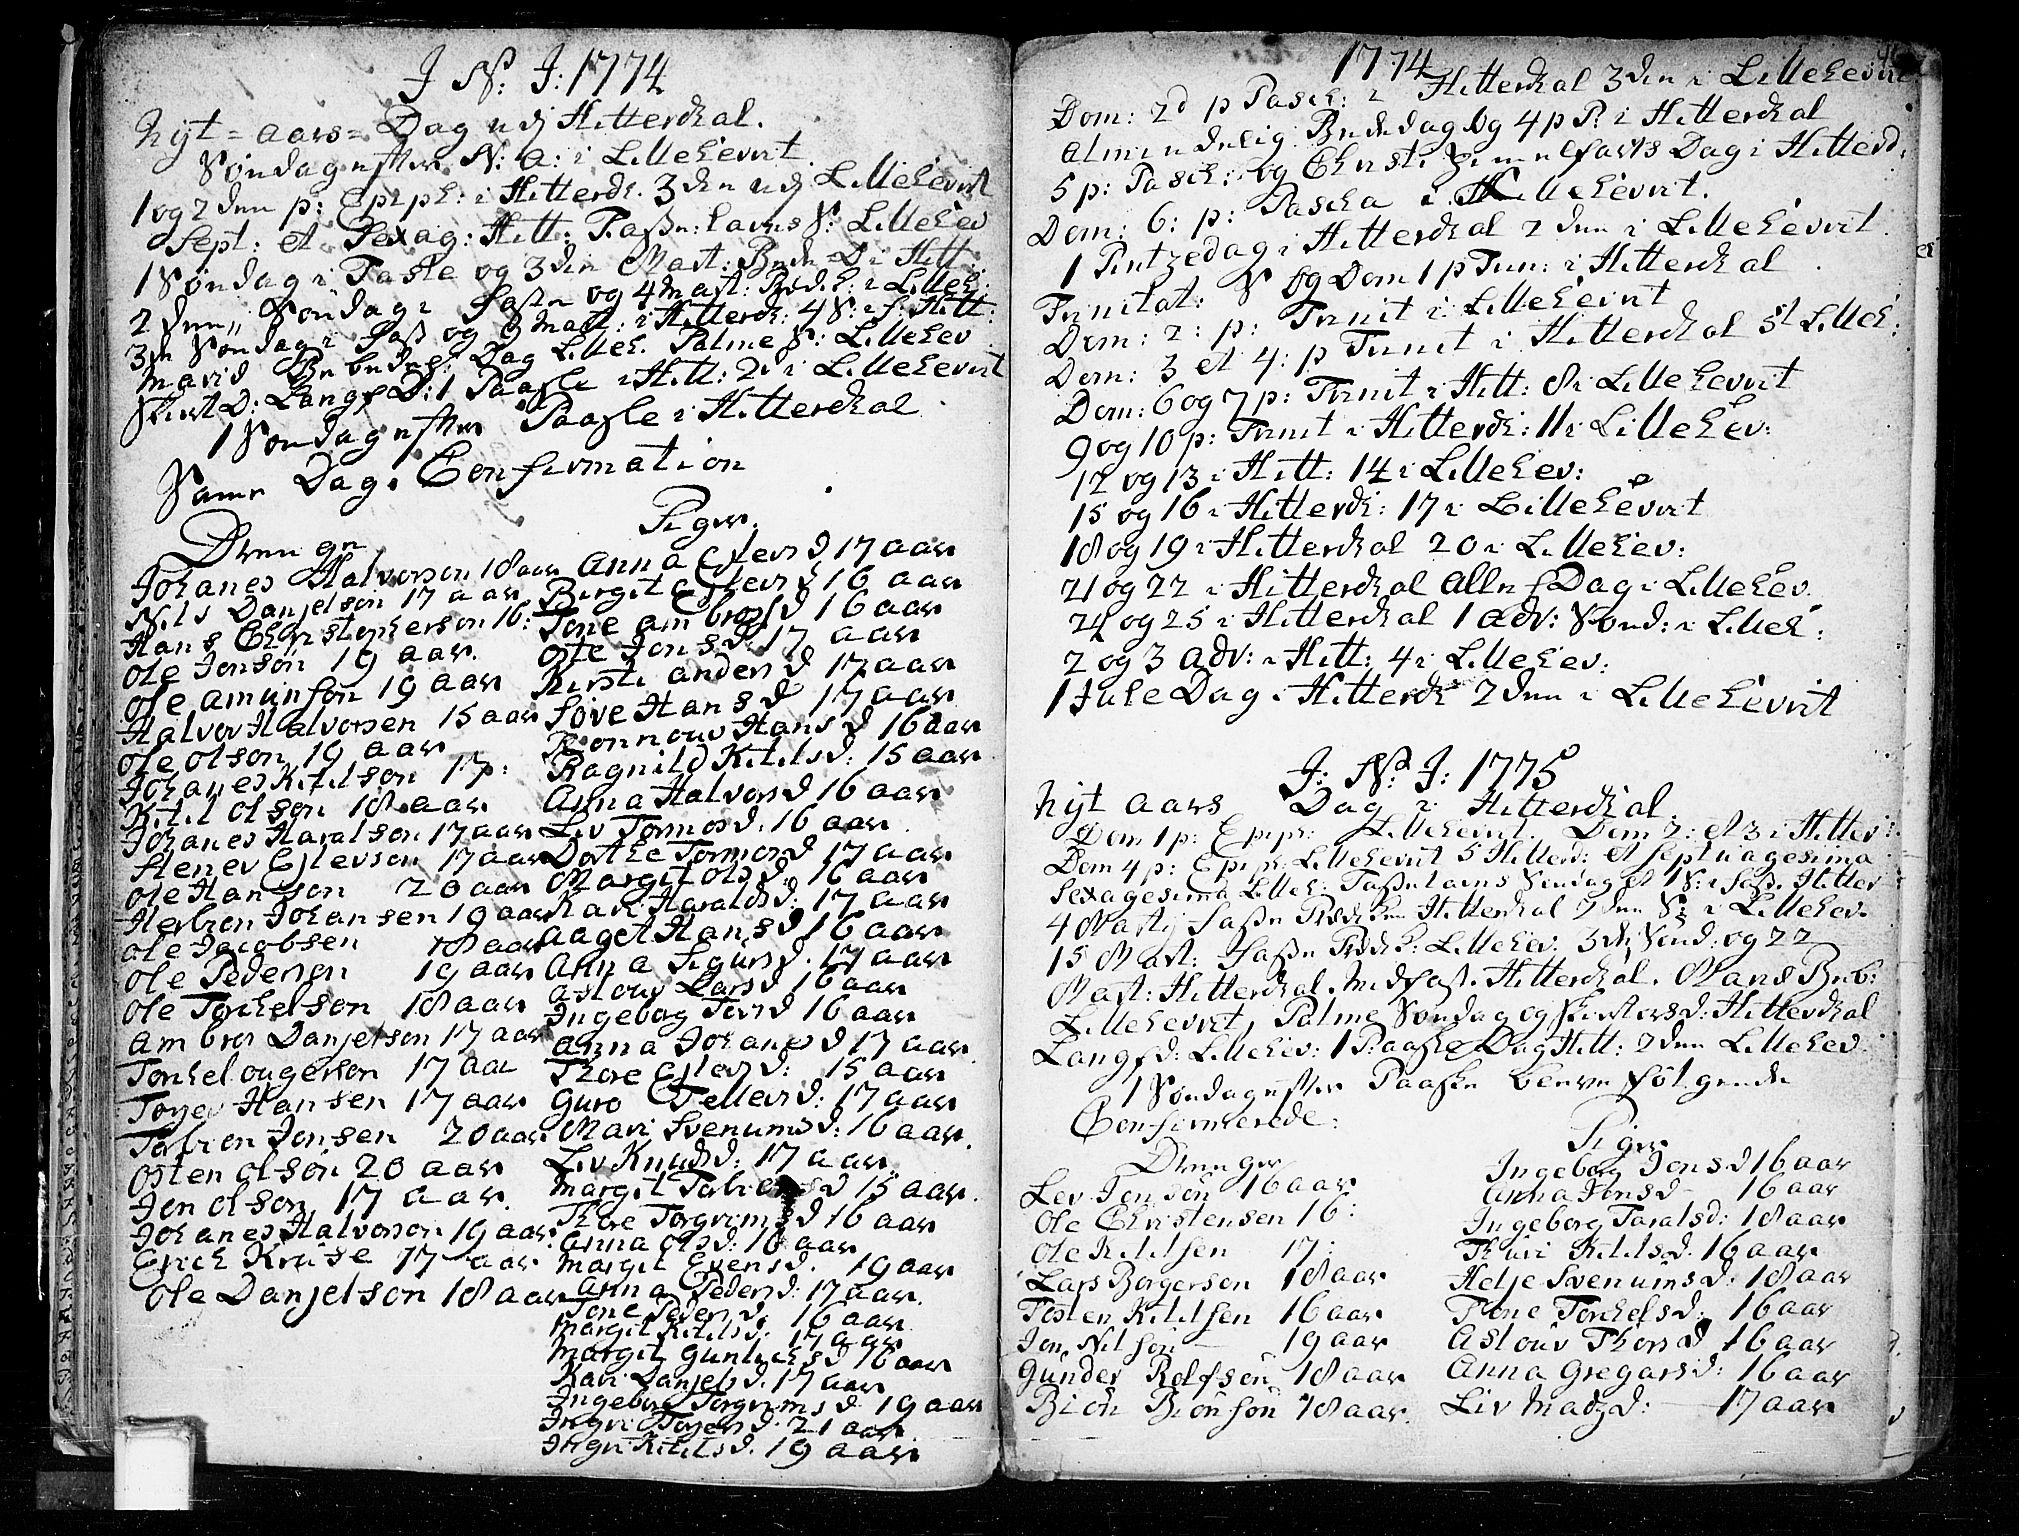 J N: J: 1774
Nyt=aars=Dag udj Hitterdhal.
Søndag efter N: a: i Lillehevert
1 og 2den p: Epiph: i Hitterdh. 3den udj Lillehevert
Sept: et Sexag: Hitt: Faste:lavns S: Lillehev
1 Søndag i Faste og 3den Mart: Bede=D i Hitt:
2den Søndag i Faste og 4 Mart: Præd: i Lilleh:
3de Søndag i Fast og Mart: i Hitterdh: 4 S: i f: Hitt:
Mariæ Bebudels: Dag Lilleh. Palme S: Lillehev
Skiert D: Langf D: 1 Paaske i Hitt: 2d i Lillehevert
1 Søndag efter Paaske i Hitterdhal
Same Dag. Confirmation
Drenge
Johanes Halvorson 18 aar
Nils Danjelson 17 aar
Hans Christopherson 16:
Ole Jonson 19 aar.
Ole amunson 19 aar
Halvor Halvorsen 15 aar
Ole Olson 19 aar
Johanes Kitilson 17:
Kitil Olson 18 aar
Johanes Haralson 17 aar
Stener Eflevson 17 aar
Ole Hanson 20 aar
Herbron Johansen 19 aar
Ole Jacobsen 18 aar
Ole Pedersen 19 aar
Ole Torkelson 18 aar
Ambros Danjelson 17 aar
Torkel ougerson 17 aar
Torger Hansen 17 aar
Torbion Jonsen 20 aar
Osten Olson 20 aar
Jon Olson 17 aar.
Johanes Halvorson 19 aar
Erich Kruse 17 aar
Ole Danjelson 18 aar
Piger.
Anna Eflevs d 17 aar
Birgit Eflevs d 16 aar
Tone ambros d 16 aar
Oste Jons d: 17 aar
Kirsti anders d 17 aar
Live Hans d 17 aar
Ronnow Hans d 16 aar
Ragnild Kitils d: 15 aar
Anna Halvors d 16 aar
Liv Tormos d. 16 aar
Dorthe Tormos d 17 aar
Margit Ols d: 16 aar
Kari Haralds d: 17 aar
Aaget Hans d 16 aar
Anna Sigurs d. 17 aar
aslow Lars d 16 aar
Ingeborg Tors d 16 aar
Anna Johanes d 17 aar
Thore Eflevs d: 15 aar
Guro Tellevs d: 17 aar
Mari Svenums d: 16 aar.
Liv Knuds d: 17 aar.
Margit Torbions d 15 aar.
Thore Torgrims d 16 aar
Anna Ols d: 16 aar
Margit Evens d. 19 aar
Anna Peders d: 17 aar.
Tone Peders d 16 aar
Margit Kitils d: 17 aar
Margit Gunlichs d 16 aar
Kari Danjels d. 17 aar
Ingeborg Torgrims d 19 aar
Ingri Torgers d. 21 aar
Ingri Kitils d. 19 aar
1774
Dom: 2d p Pasch: i Hitterdhal 3den i Lillehevert
Almindelig Bededag og 4 p P: i Hitterdhal
5 p: Pasch: og Christi Himmelfarts Dag i Hitterd:
Dom: 6: p: Pascha i Lillehevert.
1 Pintzedag i Hitterdhal 2den i Lillehevert.
Trinitat: S og Dom 1 p Trin: i Hitterdhal
Dom: 2: p: Trinit i Lillehevert
Dom: 3 et 4: p Trinit i Hitterdhal 5t Lilleh:
Dom: 6 og 7 p: Trinit i Hitt: 8 i Lillehevert
9 og 10 p: Trinit i Hitterdh: 11 i Lillehev:
12 og 13 i Hitt: 14 i Lillehev:
15 og 16 i Hitterdh: 17 i Lillehevert
18 og 19 i Hitterdhal 20 i Lillehev:
21 og 22 i Hitterdhal Alle f Dag i Lillehev
24 og 25 i Hitterdhal 1 adv: Sønd: i Lilleh:
2 og 3 adv: i Hitt: 4 i Lillehev:
1 Jule Dag i Hitterdh 2den i Lillehevert
J: N: J: 1775
Nyt aars Dag i Hitterdhal.
Dom 1 p: Epiph: Lillehevert. Dom 2: et 3 i Hitter:
Dom 4 p: Epiph: Lillehevert 5 Hitterd: et Septuagesima
Sexagesima Lilleh: Fastelavns Søndag et 1 S: i fast. Hitter
4 Martij Faste Prædiken Hitterdhal 2den S: i Lillehev.
15 Mart: Faste Præd: Lillehev. 3de Sønd: og 22
Mart: Hitterdhal. Midfast. Hitterdhal. Mariæ Beb:
Lillehevert, Palme Søndag og Skiertorsd: Hitterdhal
Langfd: Lillehev: 1 Paaske Dag Hitt: 2den Lillehev
1 Søndag efter Paaske bleve følgende
Confirmerede:
Drenger
Lev Jonson 16 aar
Ole Christensen 16:
Ole Kitilsen 17:
Lars Borgerson 18 aar
Tosten Kitilsen 16 aar
Jon Nilson 19 aar
Gunder Rolfson 18 aar
Bion Bionson 18 aar.
Piger
Ingeborg Jons d 16 aar
Anna Jons d 16 aar
Ingeborg Taralsd: 18 aar
Thuri Kitilsd. 16 aar
Helje Svenums d: 18 aar
Tone Torkels d: 16 aar
Aslouv Thors d 16 aar
Anna Gregars d: 16 aar
Liv Madz d: 17 aar